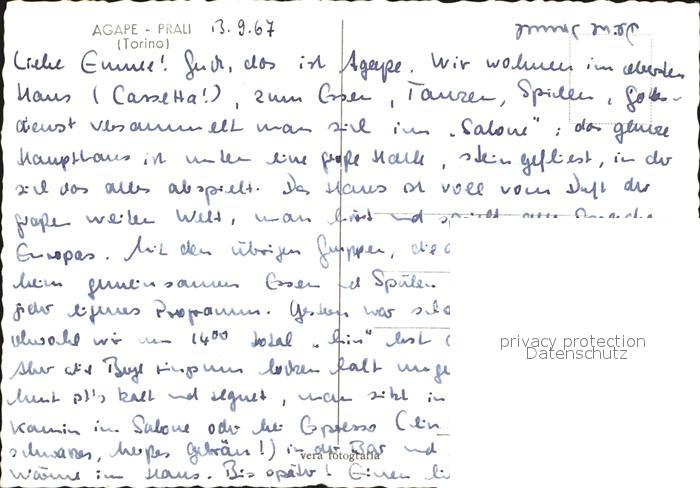 AGAPE - PRALI 13.9.67
(Torino)
Liebe Emmi! Guck, das ist Agape. Wir wohnen im obersten
Haus (Cassetta!), zum Essen, Tanzen, Spielen, Gottes-
dienst versammelt man sich im "Salone"; das ganze
Haupthaus ist unten eine große Halle, steingefliest, in der
sich das alles abspielt. Das Haus ist voll vom Duft der
großen weiten Welt, man hört und spricht alle Sprachen
Europas. Mit den übrigen Gruppen, die
beim gemeinsamen Essen und Spülen
jeder eigenes Programm. Gestern war
obwohl wir um 14⁰⁰ total "hin"
Aber die Berge ringsum locken halt
heut ist's kalt und regnet, man sitzt im
Kamin im Salone oder bei Espresso (ein
schwarzes, heißes Gebräu!) in der Bar und
Wärme im Haus. Bis später! Einen
vera fotografia
privacy protection
Datenschutz